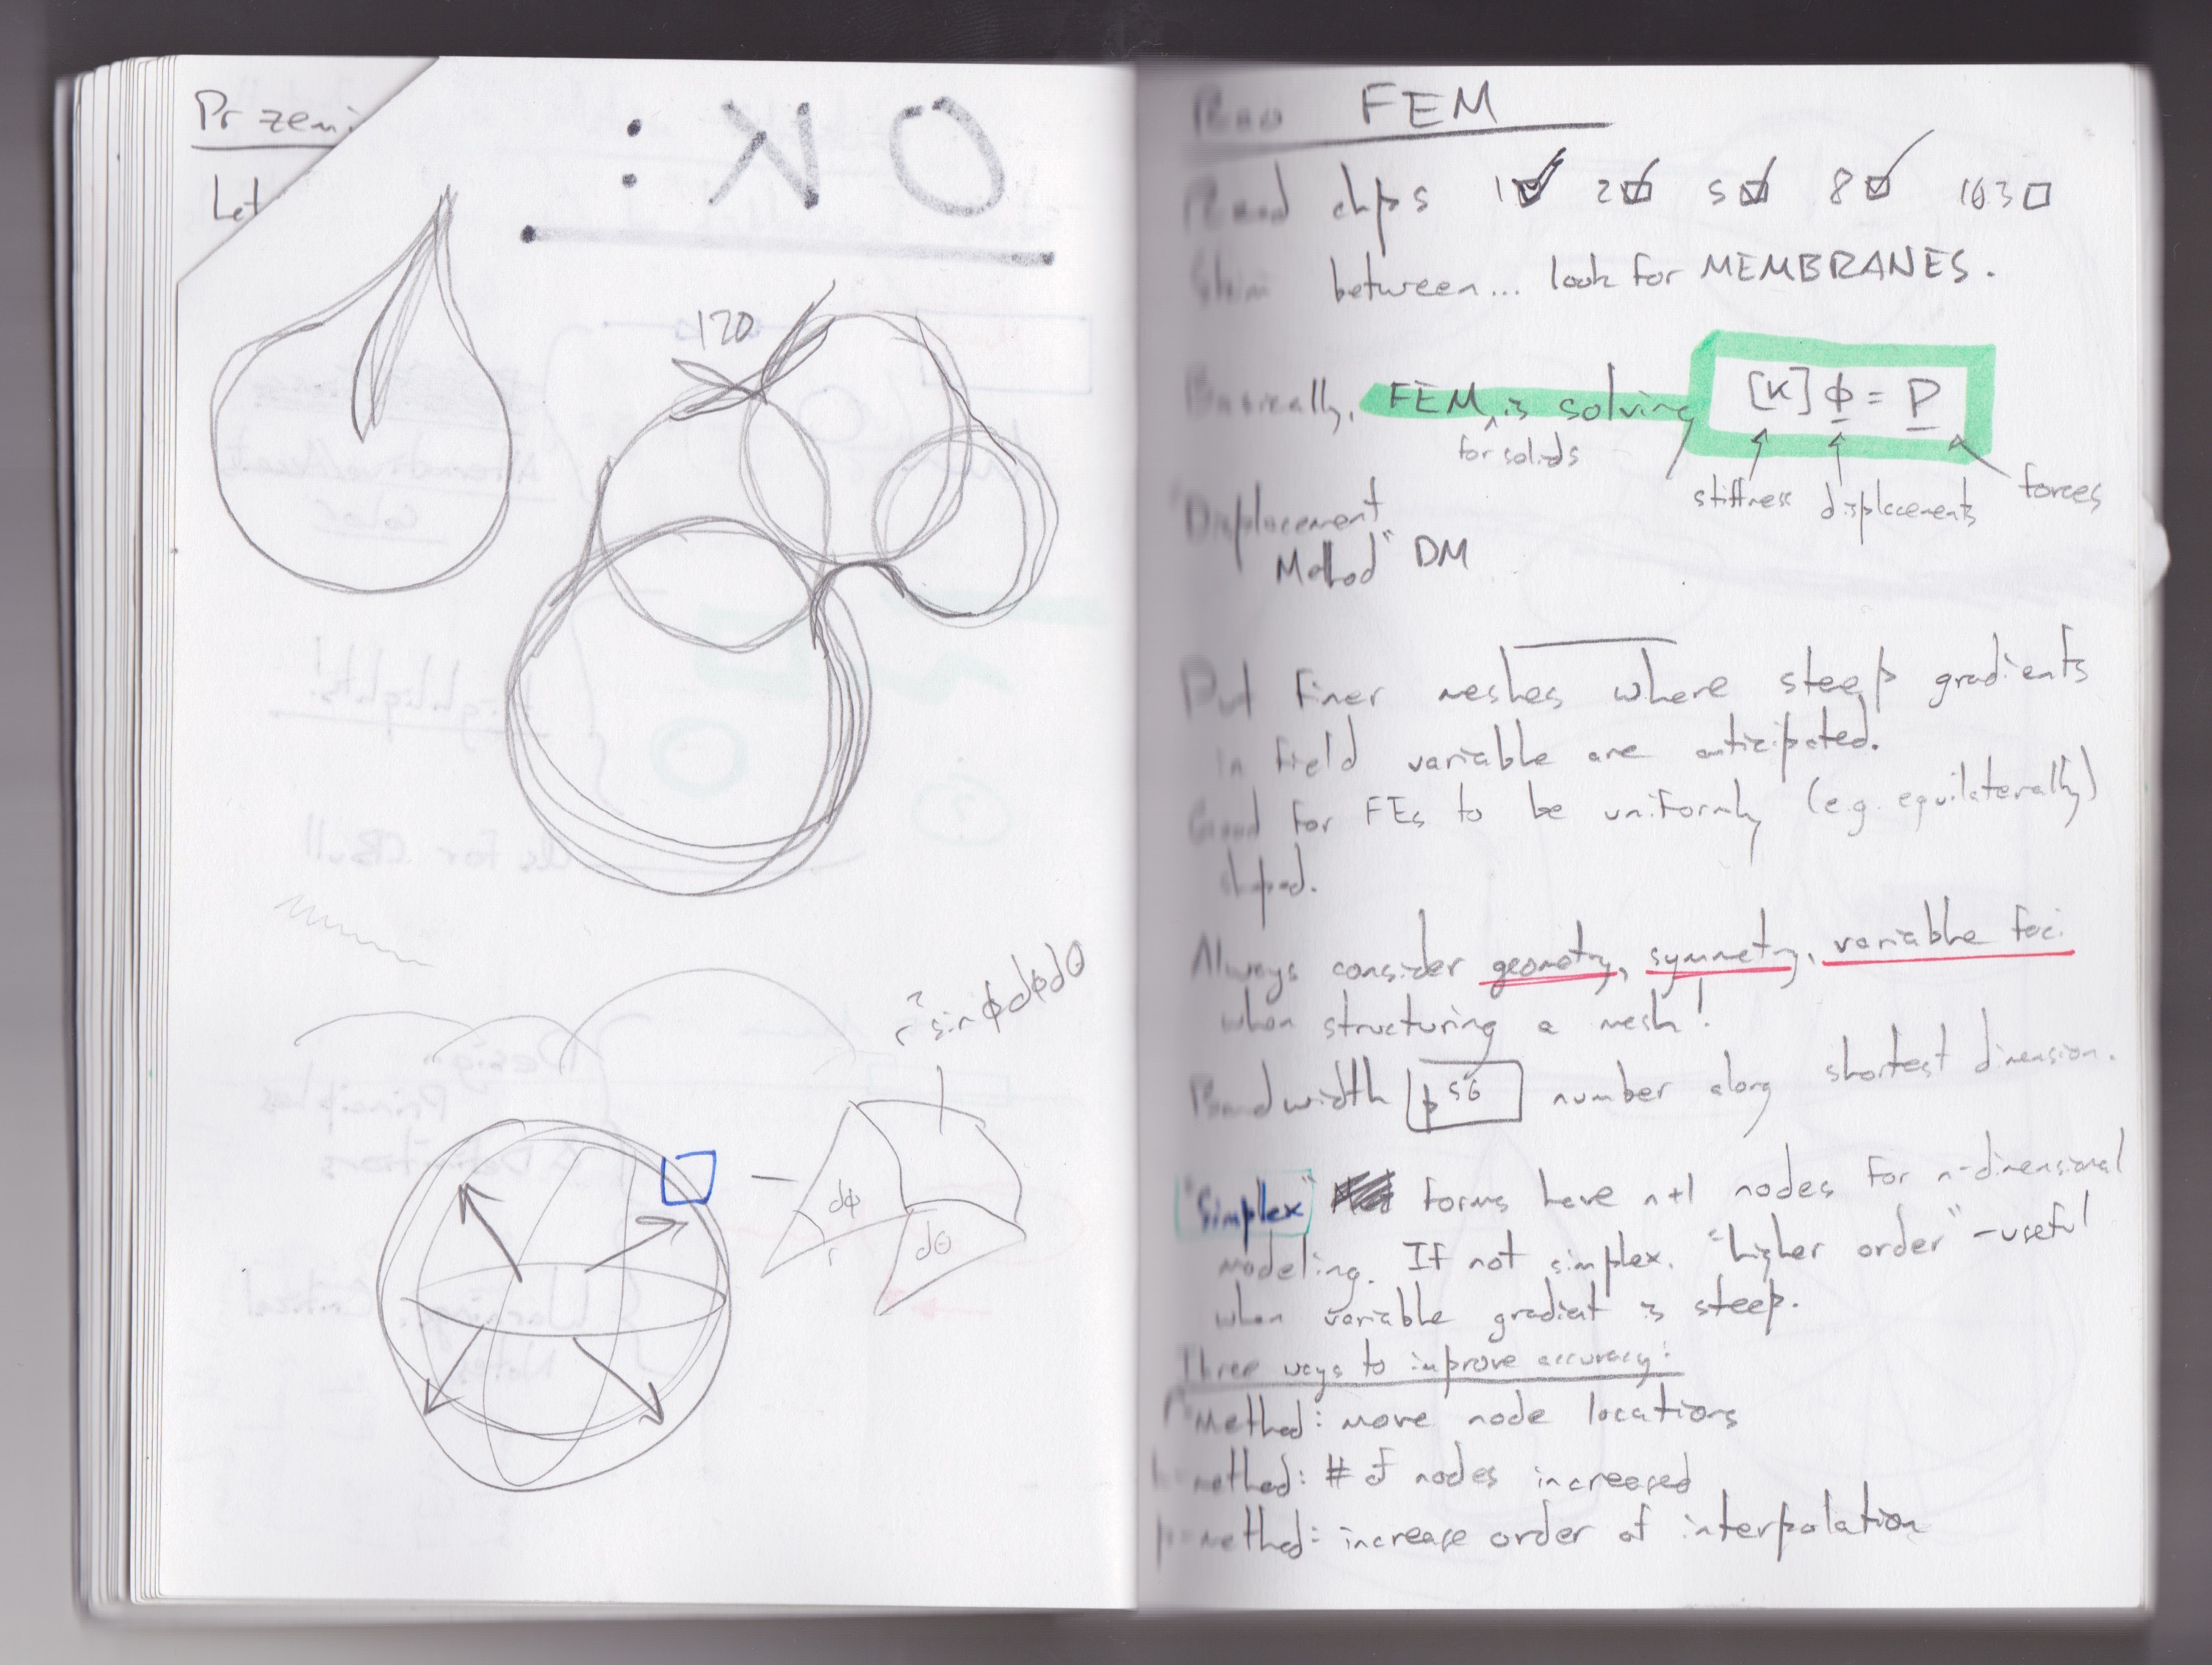 Przemi
Let
OK:
120
r² sin ϕ dϕ dθ
dϕ
r
dθ
Rao FEM
Read chps 1 ☑ 2 ☑ 5 ☑ 8 ☑ 103 ☐
Skim between... look for MEMBRANES.
Basically, FEM is solving [K] ϕ = P
for solids
stiffness displacements forces
"Displacement
Method" DM
Put finer meshes where steep gradients
in field variable are anticipated.
Good for FEs to be uniformly (e.g. equilaterally)
shaped.
Always consider geometry, symmetry, variable foci
when structuring a mesh!
Bandwidth p56 number along shortest dimension.
"Simplex" forms have n+1 nodes for n-dimensional
modeling. If not simplex. "higher order" - useful
when variable gradient is steep.
Three ways to improve accuracy:
r-Method: move node locations
h-method: # of nodes increased
p-method: increase order of interpolation